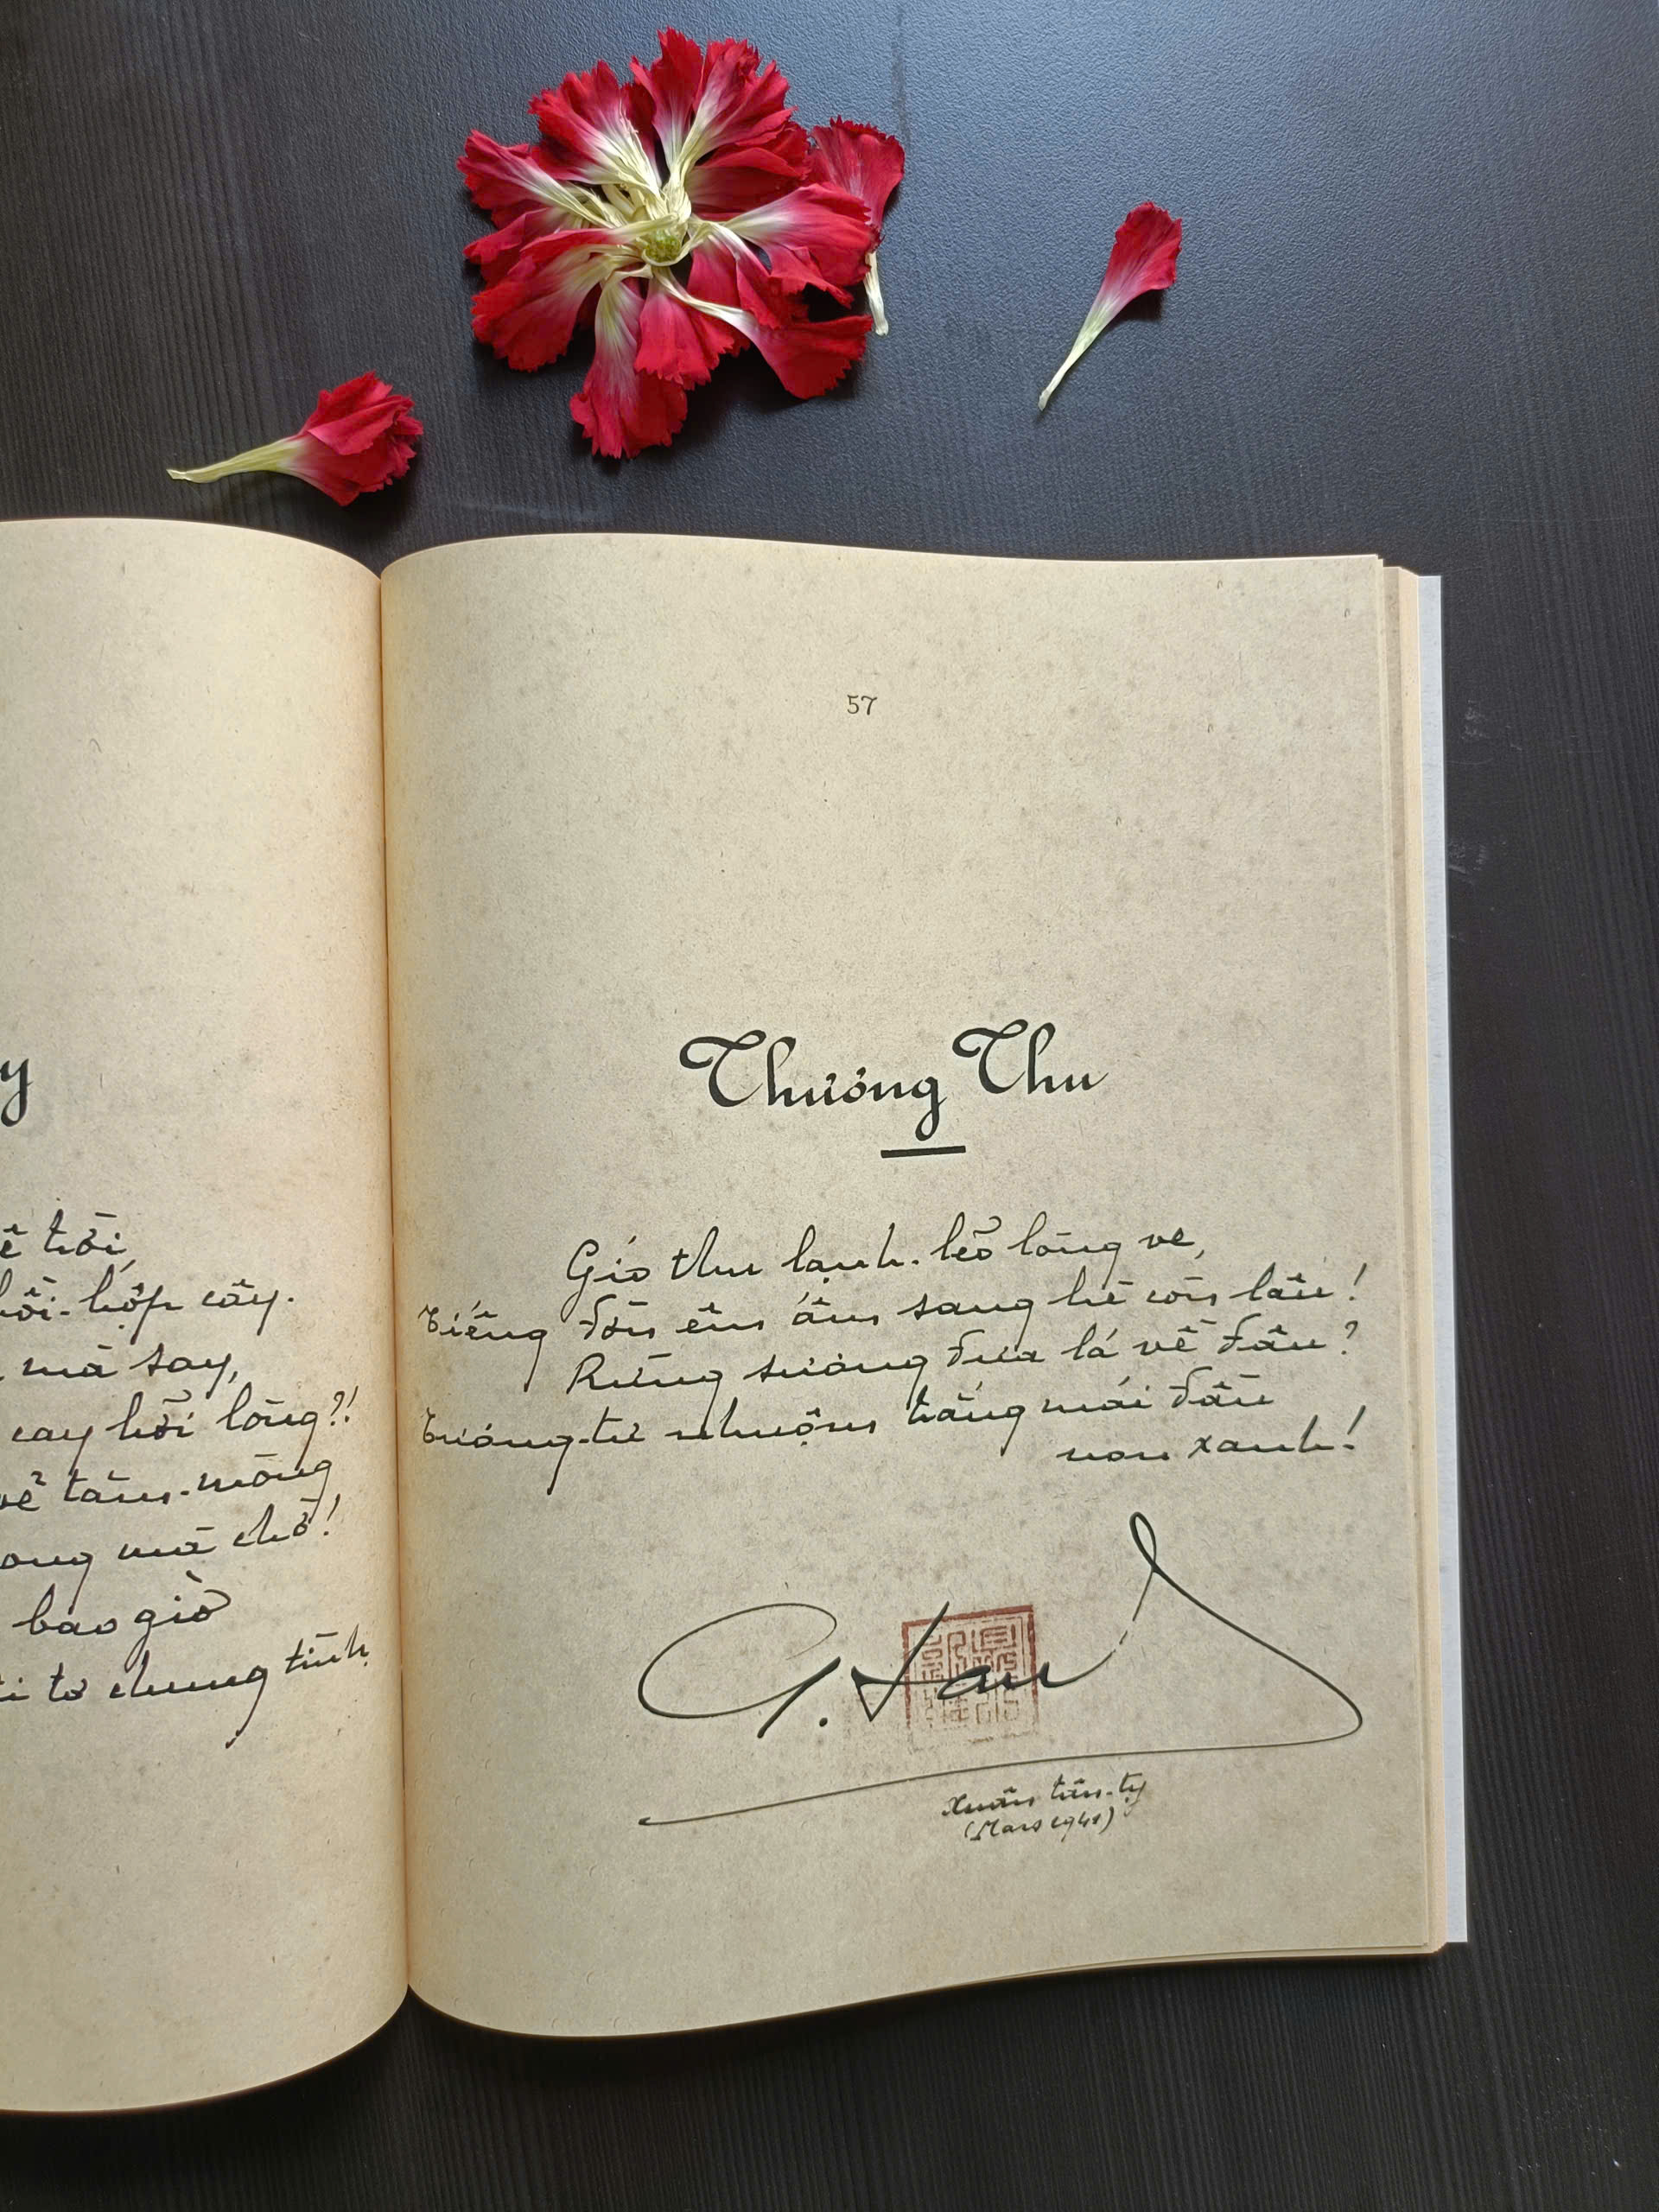 y
ề tôi,
hồi-hộp cây.
mà say,
cay hỡi lòng?!
về tằm-mộng
ong mà chờ!
bao giờ
tơ chung tình.
57
Thương Thu
Gió thu lạnh-lẽo lòng ve,
Tiếng đờn êm ấm sang hè còn lâu!
Rừng sương đưa lá về đâu?
Tương-tư nhuộm trắng mái đầu
non xanh!
Xuân tân-tỵ
(Mars 1941)